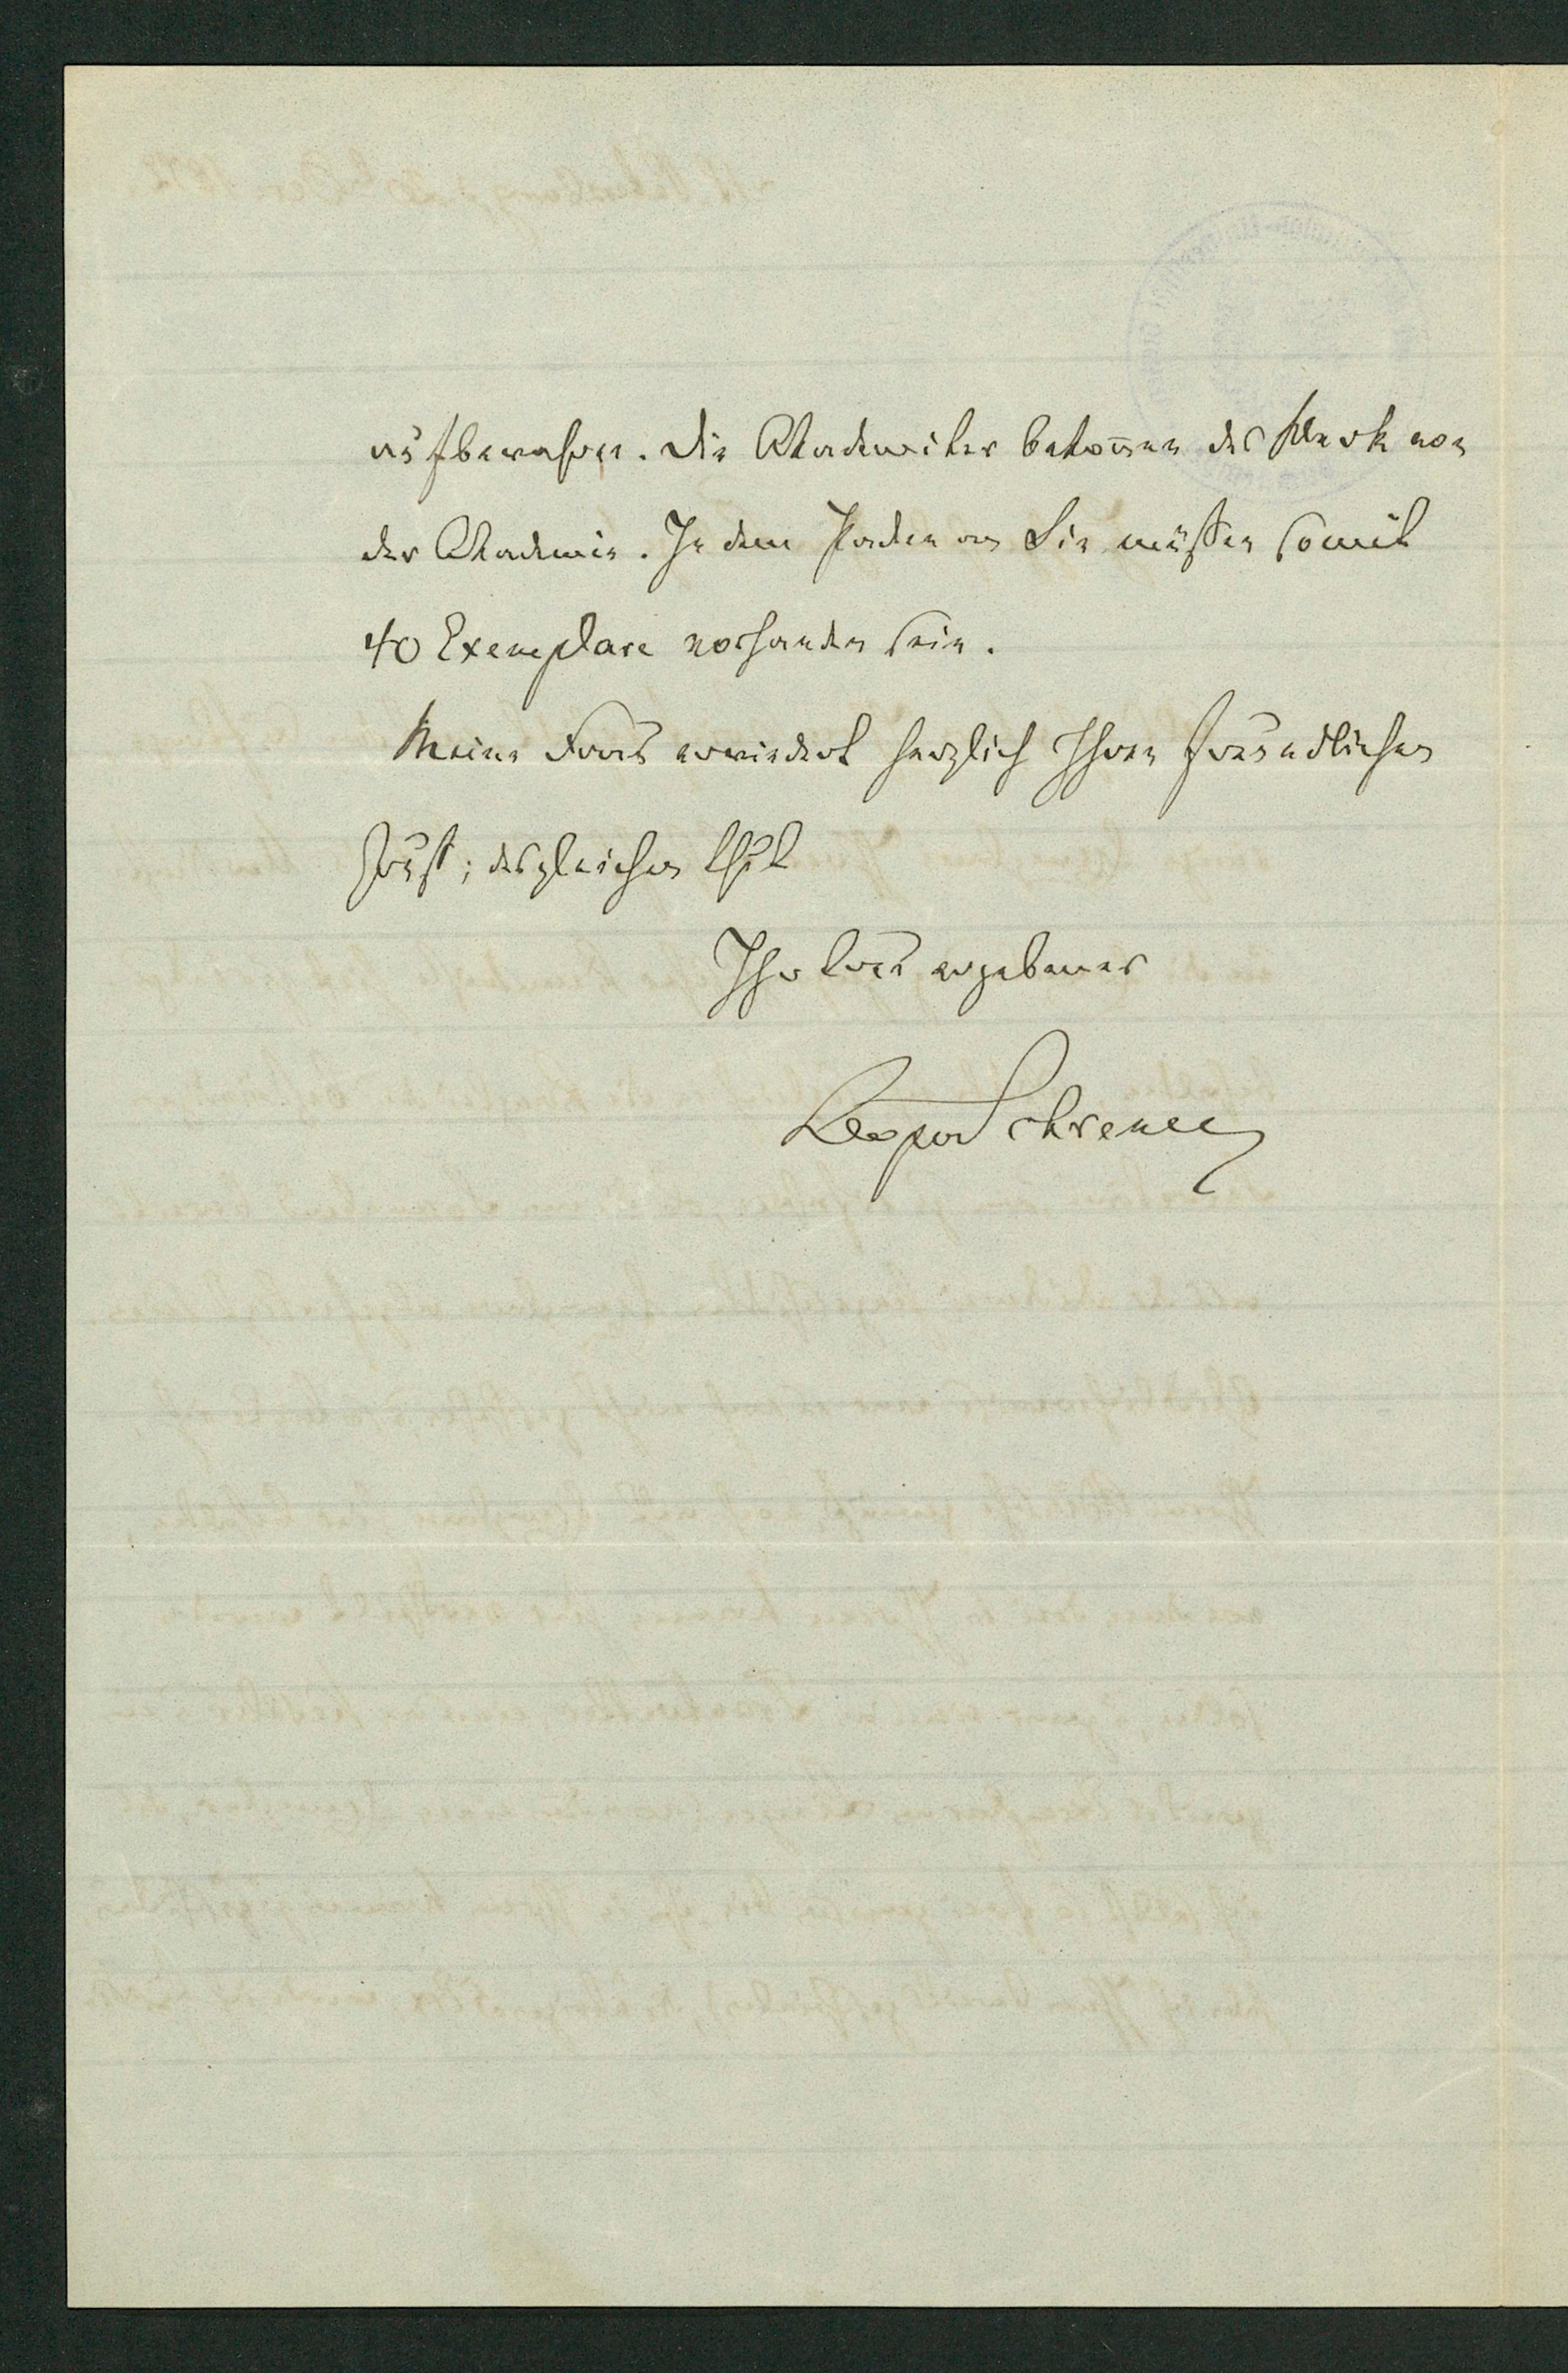 aufbewahren. Die Akademiker bekom̅en das Werk von
der Akademie. In dem Packen an Sie müssen somit
40 Exemplare vorhanden sein.
Meine Frau erwiedert herzlich Ihren freundlichen
Gruß; desgleichen thut
Ihr treu ergebener
Leopold Schrenck